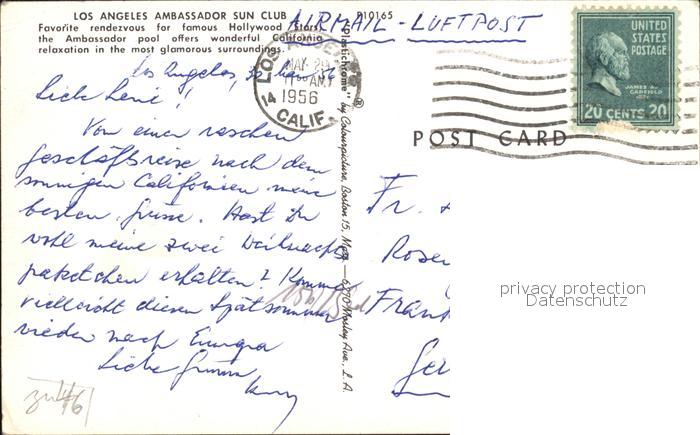 LOS ANGELES AMBASSADOR SUN CLUB P10165
Favorite rendezvous for famous Hollywood Stars,
the Ambassador pool offers wonderful California
relaxation in the most glamorous surroundings.
AIRMAIL - LUFTPOST
LOS ANGELES
MAY 29
11 AM
1956
CALIF.
UNITED
STATES
POSTAGE
JAMES A.
GARFIELD
20 CENTS 20
POST CARD
"Plastichrome" by Colourpicture, Boston 15, Mass. — 6210 Mosley Ave., L. A.
Los Angeles,
Liebe Leni!
Von einer raschen
Geschäftsreise nach dem
sonnigen Californien meine
besten Grüsse. Hast Du
wohl meine zwei Weihnachts
paketchen erhalten? Komme
vielleicht diesen Spätsommer
wieder nach Europa
Liebe
Fr.
Rosen
Frank
Ger
privacy protection
Datenschutz